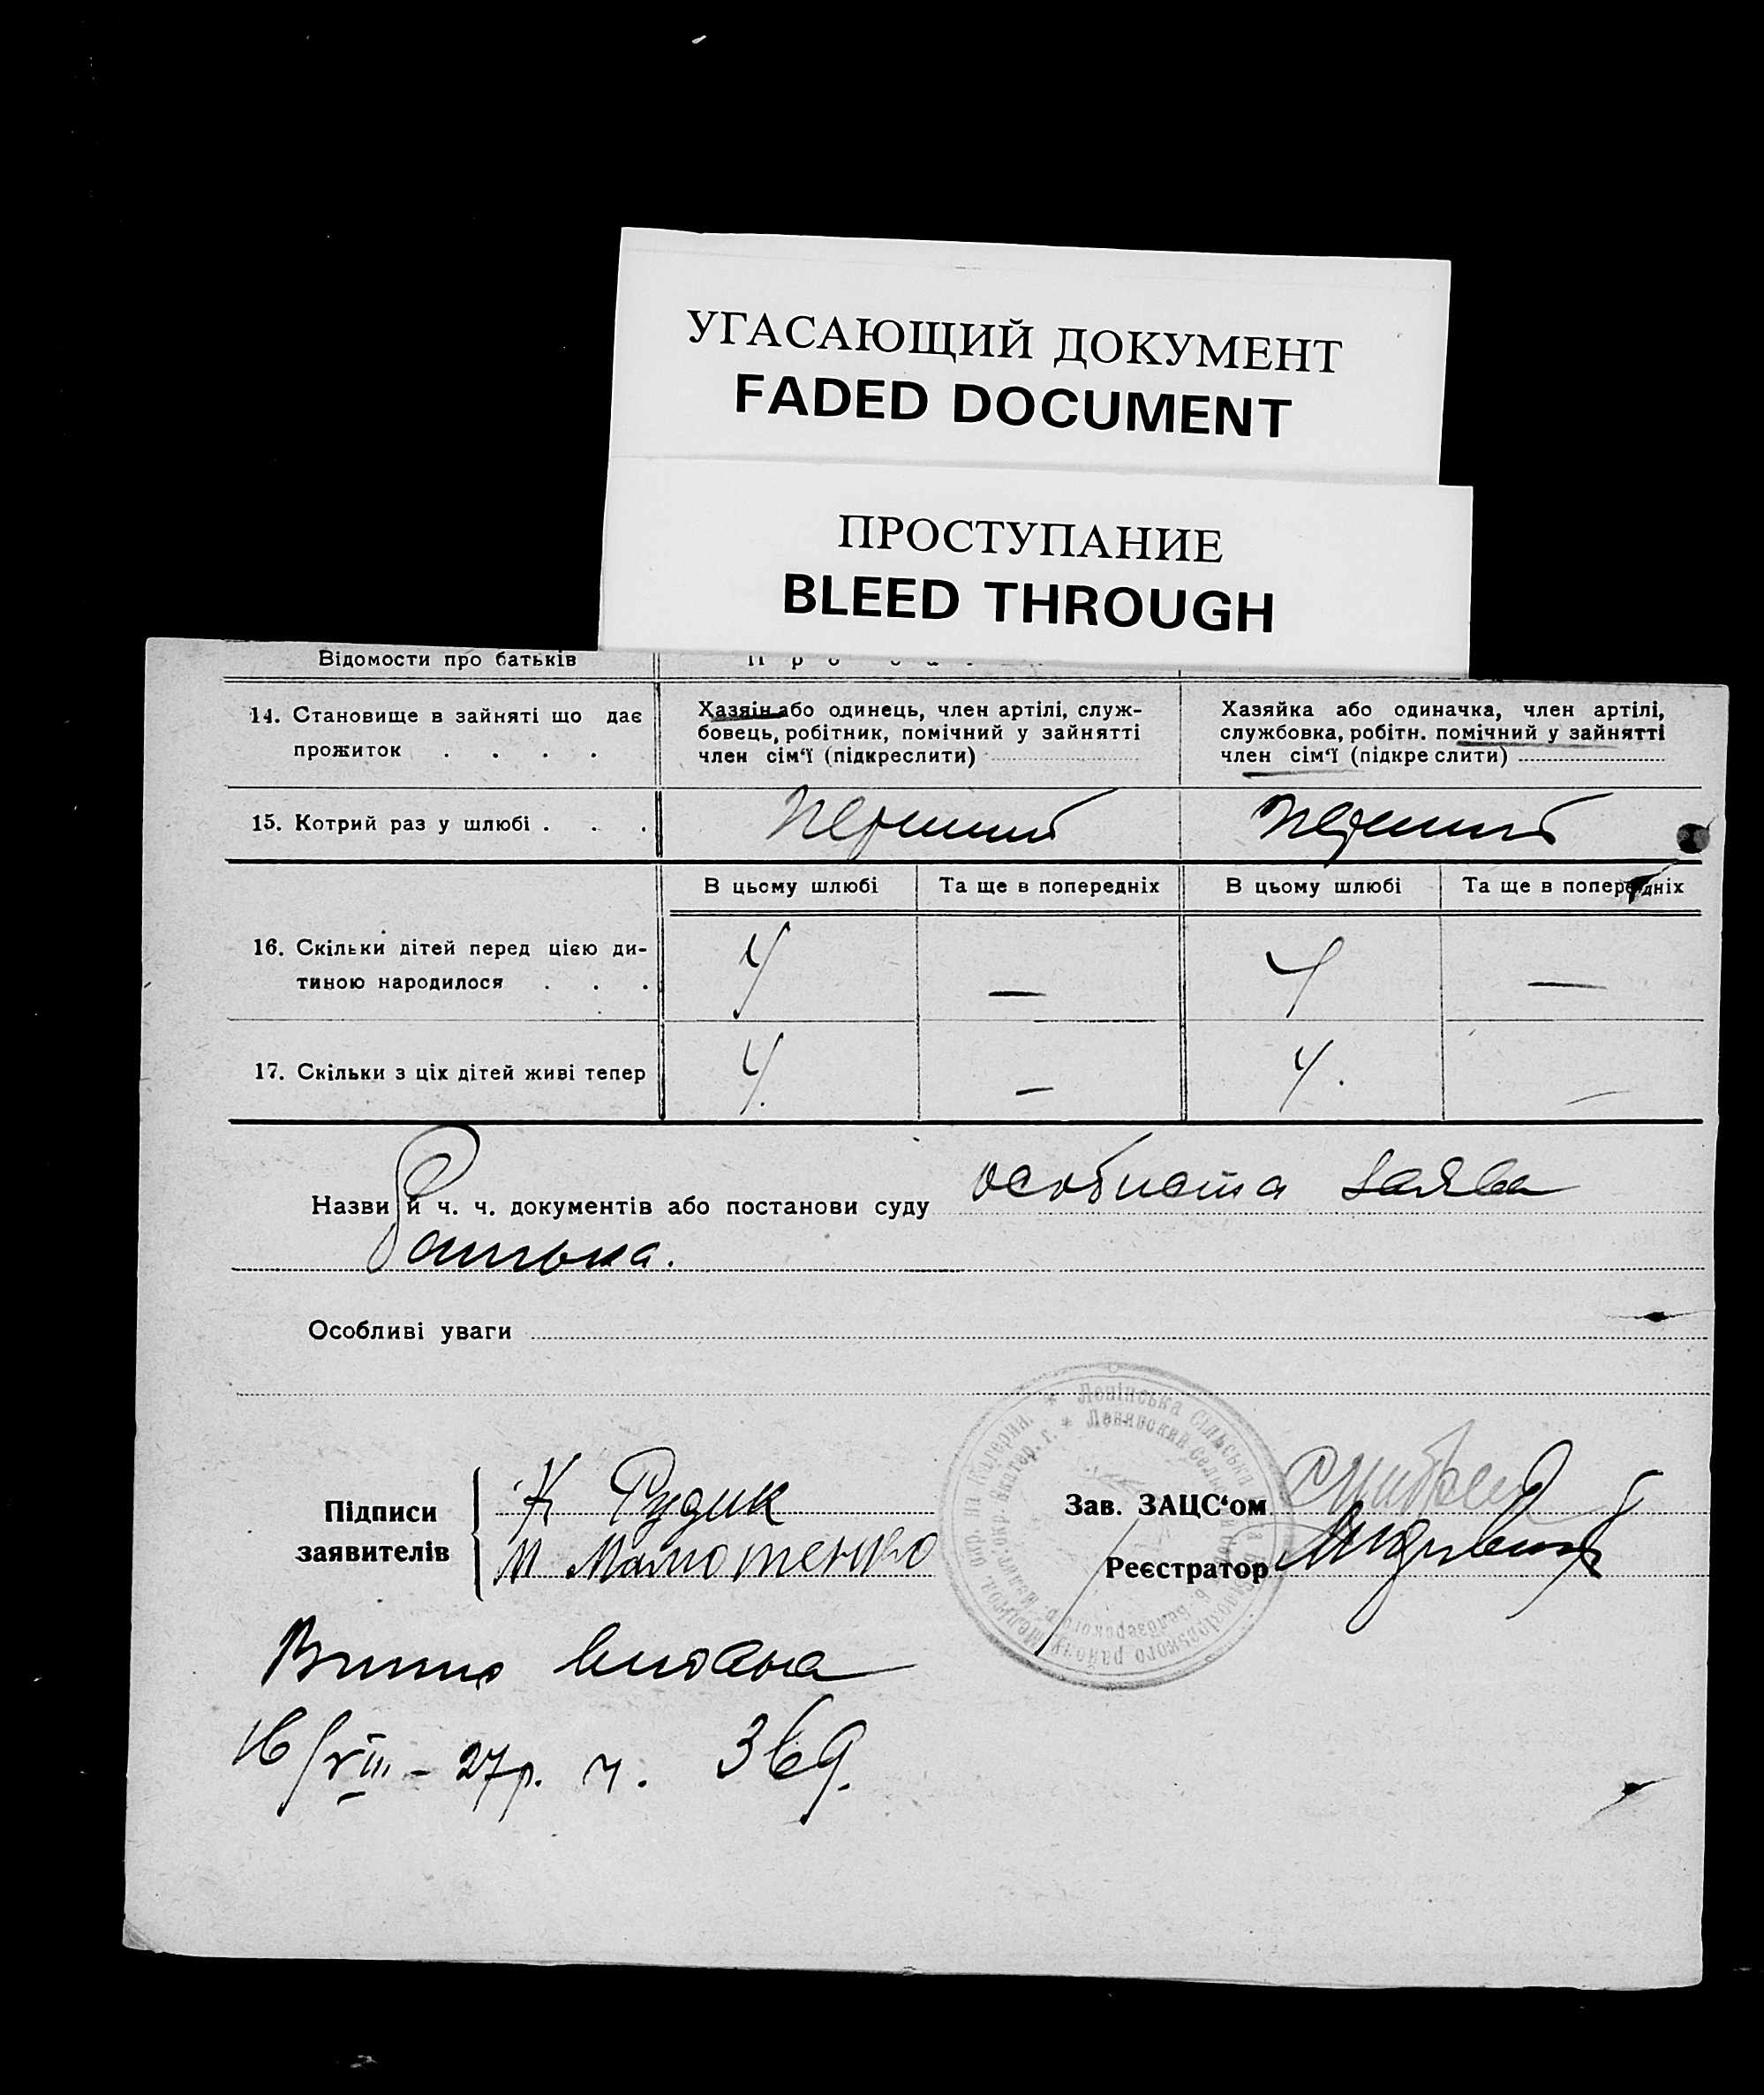 УГАСАЮЩИЙ ДОКУМЕНТ
FADED DOCUMENT
ПРОСТУПАНИЕ
BLEED THROUGH
Відомости про батьків
14. Становище в зайняті що дає
прожиток . . . .
Хазяін або одинець, член артілі, служ-
бовець, робітник, помічний у зайнятті
член сім'ї (підкреслити)
Хазяйка або одиначка, член артілі,
службовка, робітн. помічний у зайнятті
член сім'ї (підкреслити)
15. Котрий раз у шлюбі . . .
перший
перший
В цьому шлюбі
Та ще в попередніх
В цьому шлюбі
Та ще в попередніх
16. Скільки дітей перед цією ди-
тиною народилося . . .
4
—
4
—
17. Скільки з ціх дітей живі тепер
4.
—
4.
—
Назви й ч. ч. документів або постанови суду особиста заява
батька.
Особливі уваги
Підписи
заявителів
К Рудик
М
Зав. ЗАЦС'ом
Реєстратор
Ленінська Сільська
району
видана
16/VIII – 27р. ч. 369.